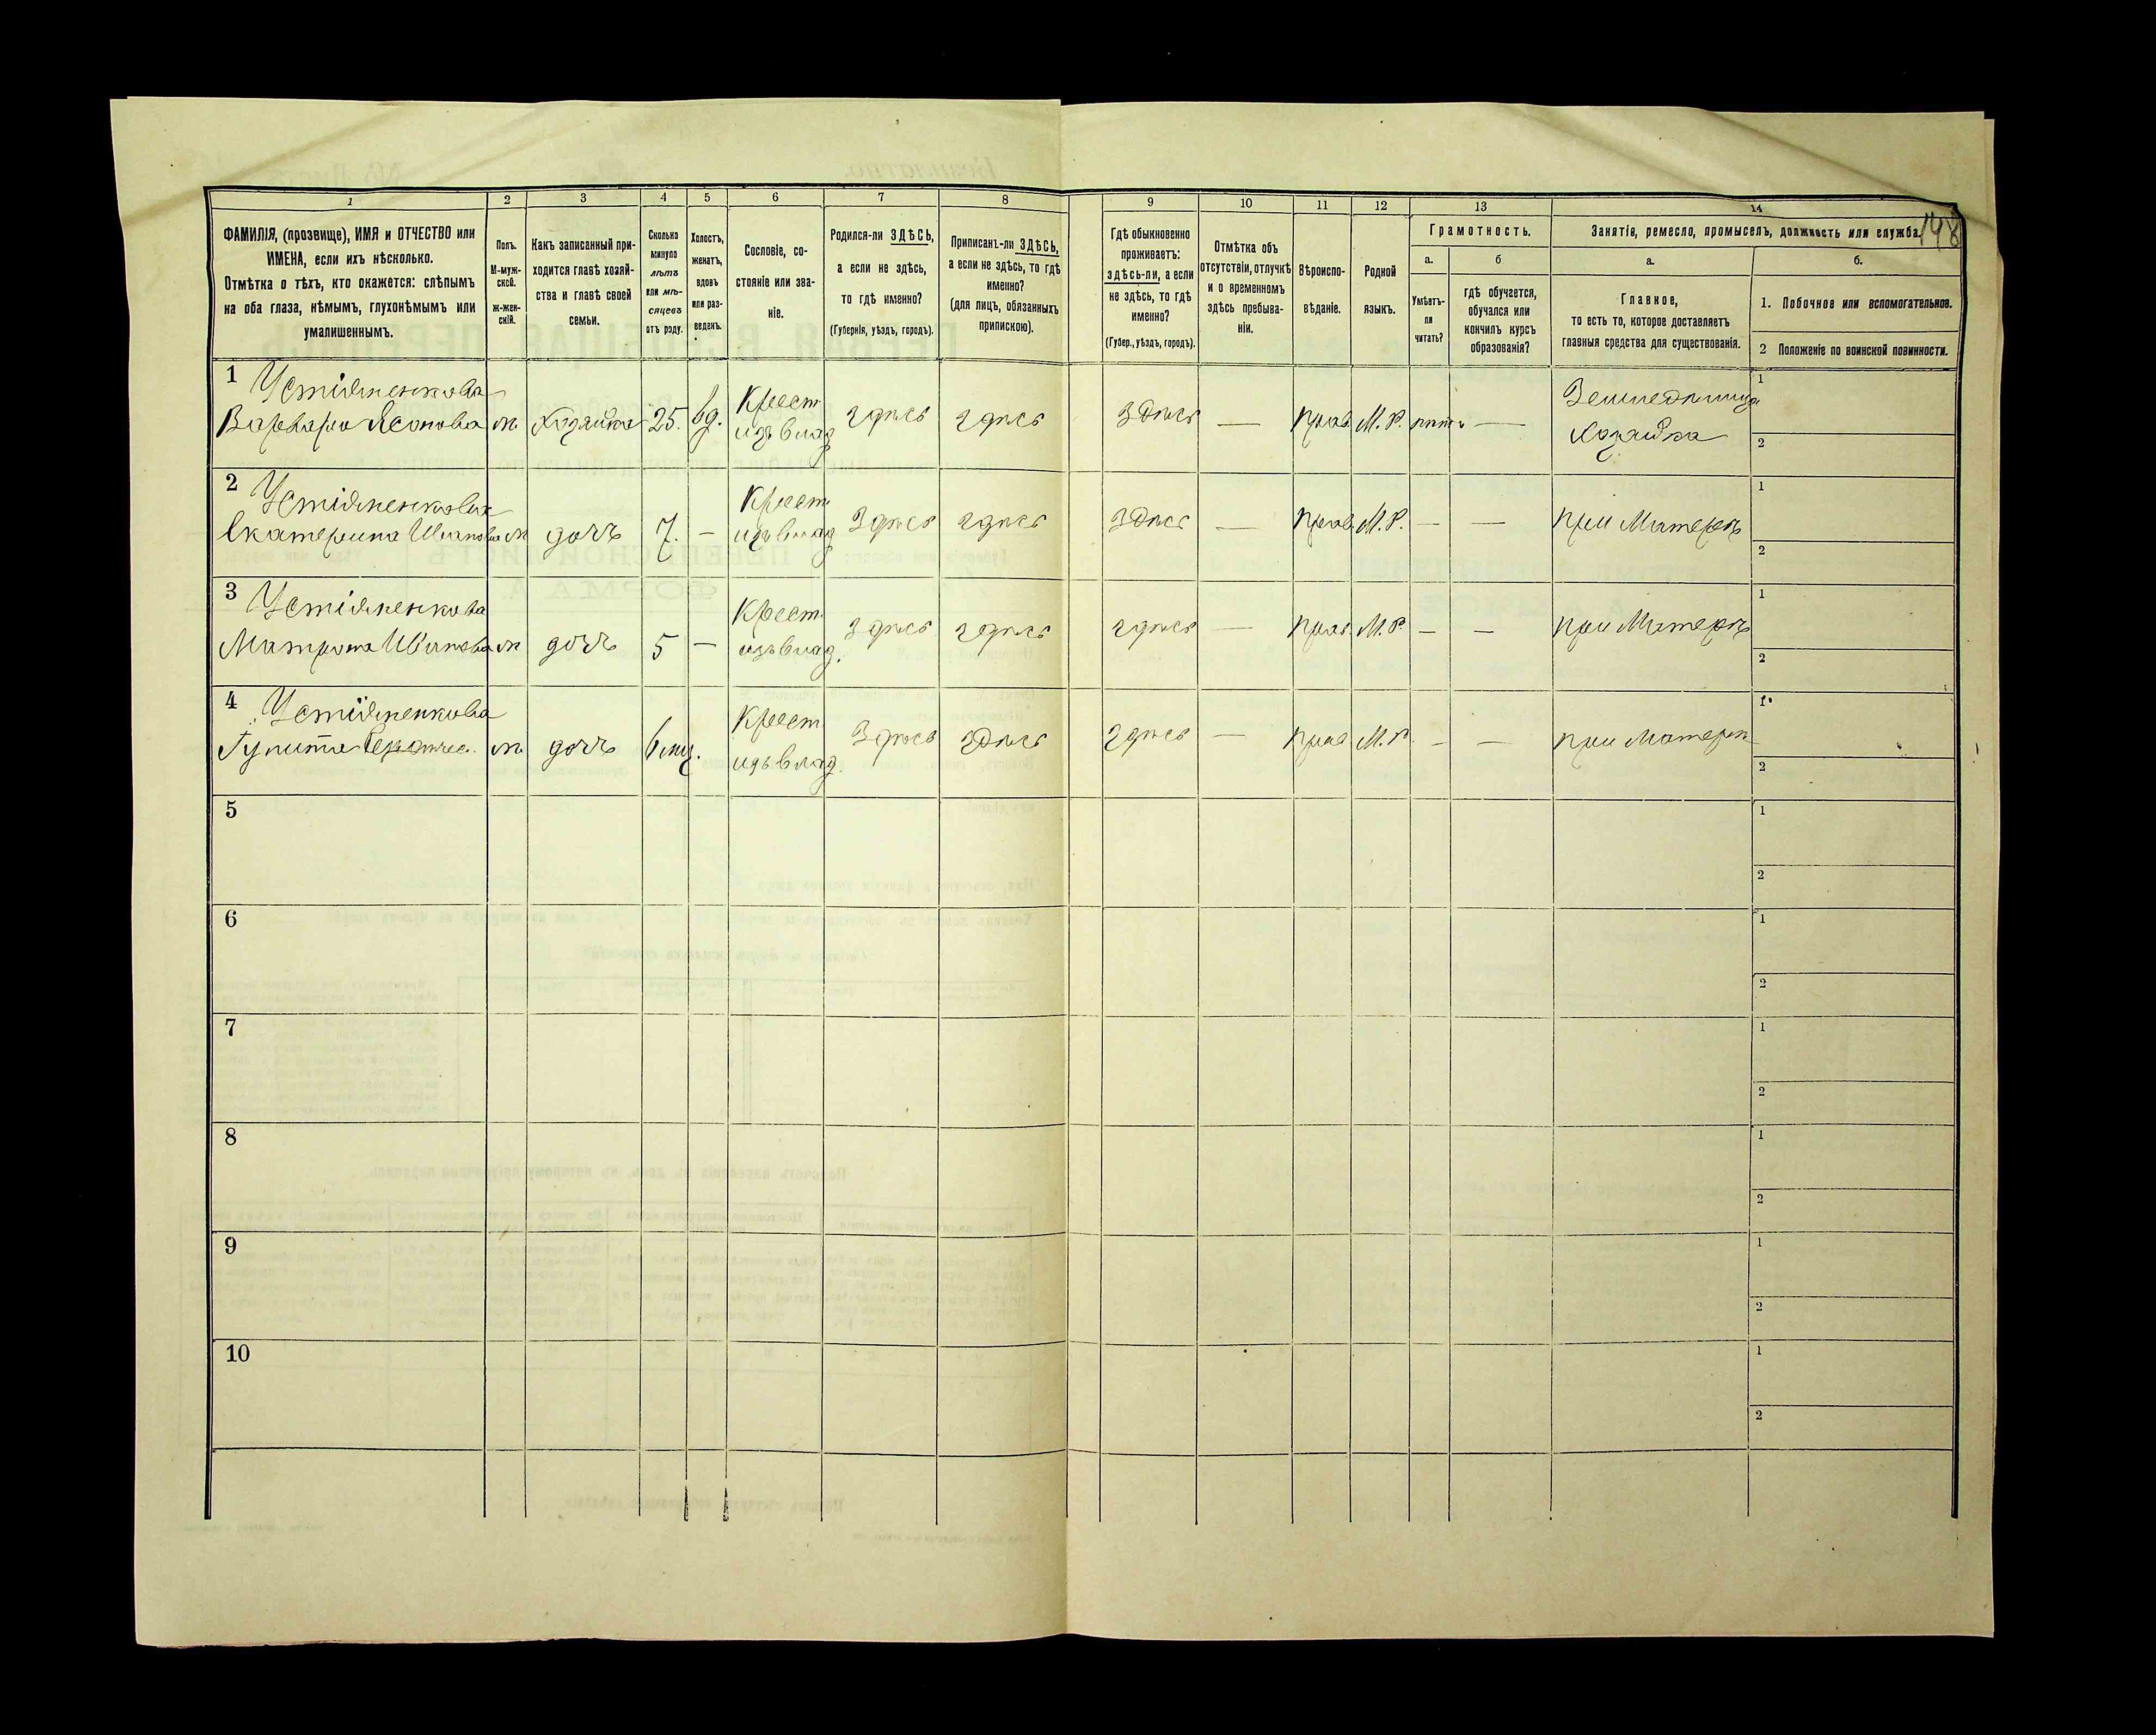 1
2
3
4
5
6
7
8
9
10
11
12
13
14
148
ФАМИЛІЯ, (прозвище), ИМЯ и ОТЧЕСТВО или
ИМЕНА, если ихъ нѣсколько.
Отмѣтка о тѣхъ, кто окажется: слѣпымъ
на оба глаза, нѣмымъ, глухонѣмымъ или
умалишеннымъ.
Полъ.
М-муж-
ской.
ж-жен-
скій.
Какъ записанный при-
ходится главѣ хозяй-
ства и главѣ своей
семьи.
Сколько
минуло
лѣтъ
или мѣ-
сяцевъ
отъ роду.
Холостъ,
женатъ,
вдовъ
или раз-
веденъ.
Сословіе, со-
стояніе или зва-
ніе.
Родился-ли ЗДѢСЬ,
а если не здѣсь,
то гдѣ именно?
(Губернія, уѣздъ, городъ).
Приписанъ-ли ЗДѢСЬ,
а если не здѣсь, то гдѣ
именно?
(для лицъ, обязанныхъ
припискою).
Гдѣ обыкновенно
проживаетъ:
здѣсь-ли, а если
не здѣсь, то гдѣ
именно?
(Губер., уѣздъ, городъ).
Отмѣтка объ
отсутствіи, отлучкѣ
и о временномъ
здѣсь пребыва-
ніи.
Вѣроиспо-
вѣданіе.
Родной
языкъ.
Грамотность.
а.
Умѣетъ-
ли
читать?
б
гдѣ обучается,
обучался или
кончилъ курсъ
образованія?
Занятія, ремесло, промыселъ, должность или служба.
а.
Главное,
то есть то, которое доставляетъ
главныя средства для существованія.
б.
1. Побочное или вспомогательное.
2 Положеніе по воинской повинности.
1 Устіяненкова Крест. Земледѣлица 1
Варвара ж Хозяйка 25. вд. изъ влад здѣсь здѣсь здѣсь — прав. М.Р. нѣтъ — Хозяйка 2
2 Устіяненкова Крест 1
Екатерина Иванова ж дочь 7. — изъ влад здѣсь здѣсь здѣсь — прав М.Р. — — при Матерѣ 2
3 Устіяненкова Крест. 1
Матрона Иванова ж дочь 5 — изъ влад. здѣсь здѣсь здѣсь — прав. М.Р. — — при Матерѣ 2
4 Устіяненкова Крест. 1
ж дочь 6 мц. изъ влад. здѣсь здѣсь здѣсь — прав М.Р. — — при Матерѣ 2
5 1
2
6 1
2
7 1
2
8 1
2
9 1
2
10 1
2